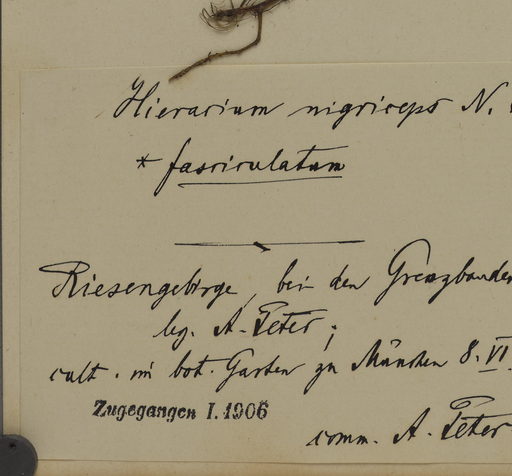 Hieracium nigriceps N.
* fasciculatum
Riesengebirge, bei den Grenzbauden
leg. A. Peter;
cult. im bot. Garten zu München 8. VI.
Zugegangen I. 1906
comm. A. Peter